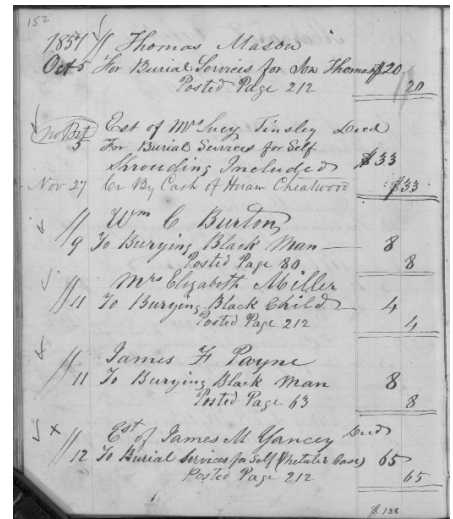 152
1857 // Thomas Mason
Oct 5 For Burial Services for Son Thomas $20
Posted Page 212 20
Est of Mrs Lucy Tinsley Decd
5 For Burial Services for Self
Shrouding Included $33
Nov 27 Cr By Cash of Hiram Cheatwood $33
// Wm C Burton
// 9 To Burying Black Man — 8
Posted Page 80 8
Mrs Elizabeth Miller
// 11 To Burying Black Child — 4
Posted Page 212 4
// James F Payne
// 11 To Burying Black Man 8
Posted Page 63 8
x Est of James M Yancey Decd
// 12 To Burial Services for Self (Metalic Case) 65
Posted Page 212 65
$ 138